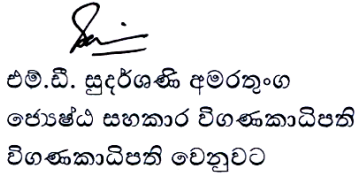 එම්.ඩී. සුදර්ශණි අමරතුංග
ජ්‍යෙෂ්ඨ සහකාර විගණකාධිපති
විගණකාධිපති වෙනුවට